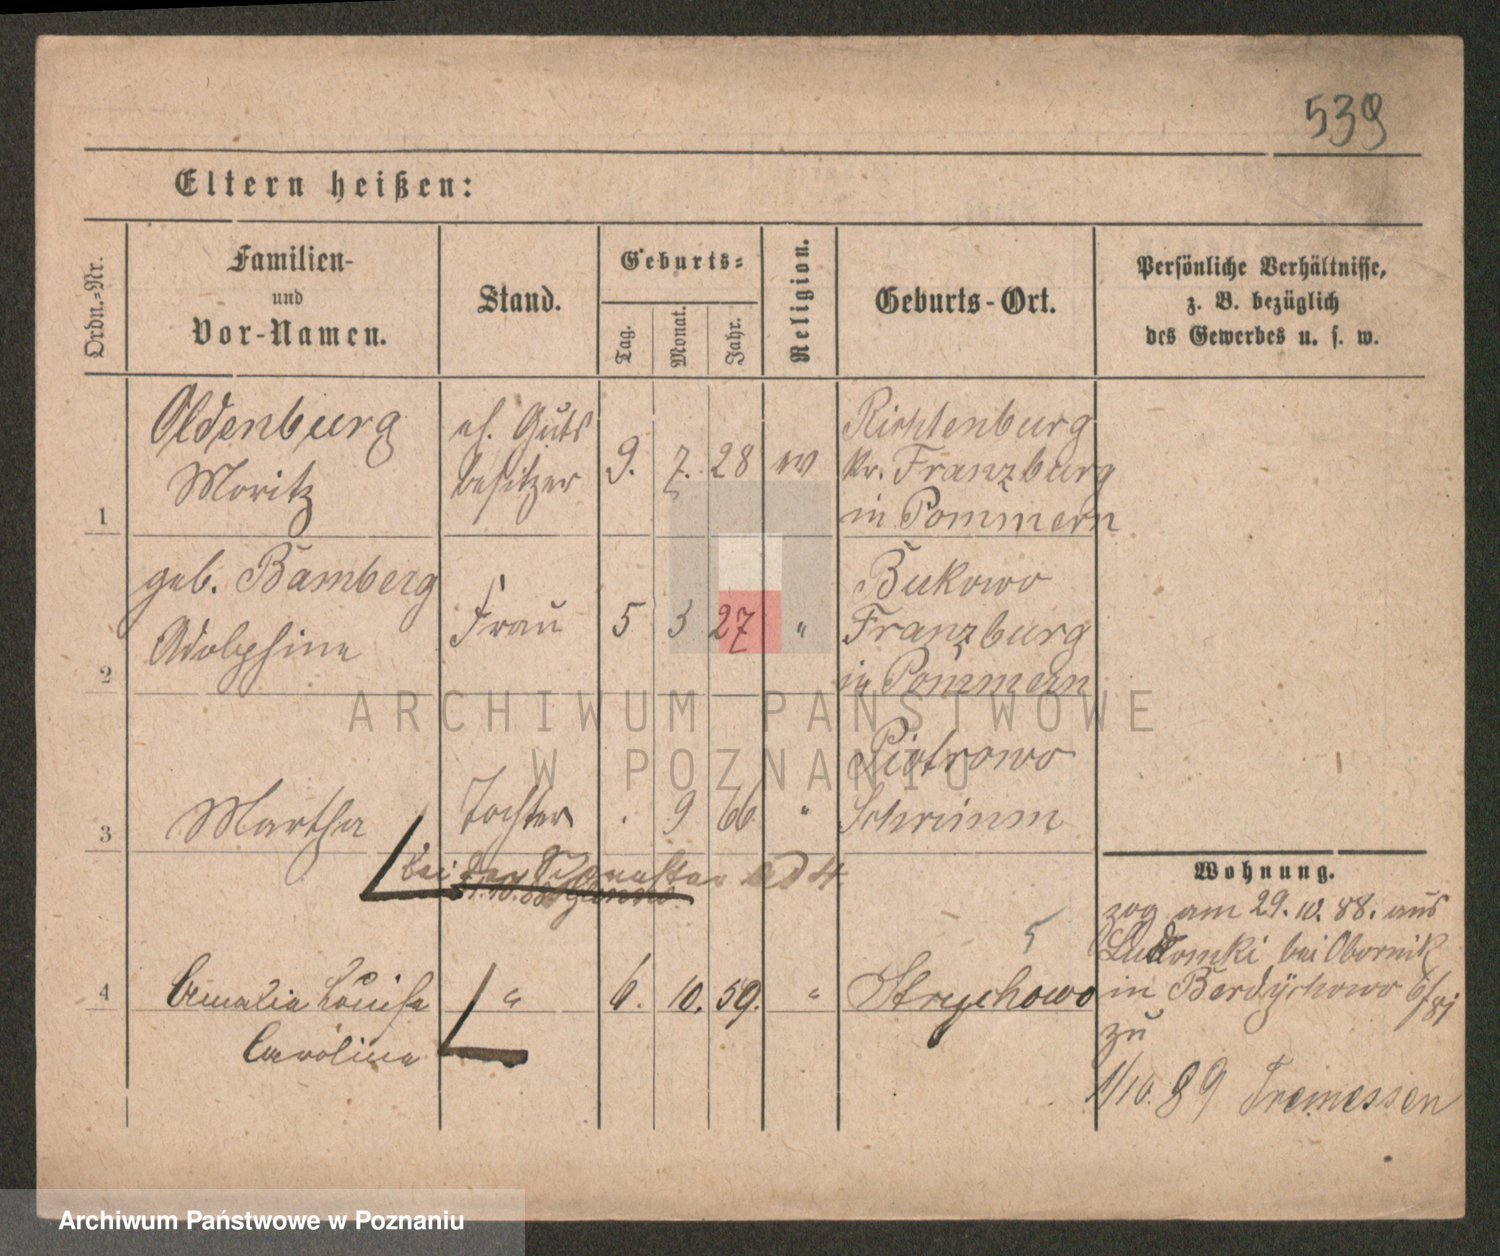 539
Eltern heißen:
Ordn.-Nr.
Familien-
und
Vor-Namen.
Stand.
Geburts-
Tag.
Monat.
Jahr.
Religion.
Geburts-Ort.
Persönliche Verhältnisse,
z. B. bezüglich
des Gewerbes u. s. w.
1
Oldenburg
Moritz
eh. Guts
besitzer
9. 7. 28
Richtenburg
Kr. Franzburg
in Pommern
2
geb. Bamberg
Adolphine
Frau
5 3 27 "
Bukowo
Franzburg
in Pommern
3
Martha
Tochter
. 9 66 "
Piotrowo
Schrimm
bei der ad 4
4
Amalia Louise
Caroline
"
6. 10. 59. "
5
Strychowo
Wohnung.
zog am 29.10.88. aus
Ludomki bei Obornik
in Berdychowo 6/
zu
1/10.89 Tremessen
ARCHIWUM PAŃSTWOWE
W POZNANIU
Archiwum Państwowe w Poznaniu